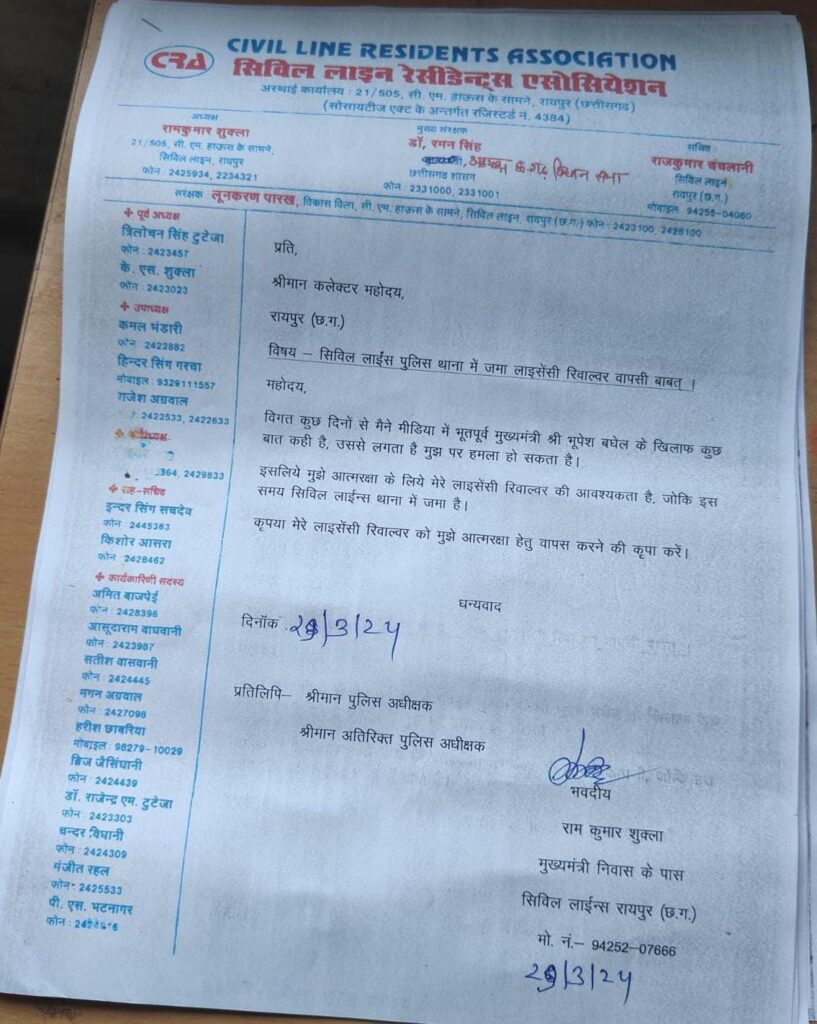 CRA
CIVIL LINE RESIDENTS ASSOCIATION
सिविल लाइन रेसीडेन्ट्स एसोसियेशन
अस्थाई कार्यालय : 21/505, सी. एम. हाऊस के सामने, रायपुर (छत्तीसगढ़)
(सोसायटीज एक्ट के अन्तर्गत रजिस्टर्ड नं. 4384)
अध्यक्ष
रामकुमार शुक्ला
21/505, सी. एम. हाऊस के सामने,
सिविल लाईन, रायपुर
फोन : 2425934, 2234321
मुख्य संरक्षक
डॉ. रमन सिंह
छत्तीसगढ़ शासन
फोन 2331000, 2331001
सचिव
राजकुमार बंचलानी
सिविल लाईन
रायपुर (छ.ग.)
मोबाइल 94255-04060
संरक्षक लूनकरण पारख, विकास विला, सी. एम. हाऊस के सामने, सिविल लाईन, रायपुर (छ.ग.) फोन : 2423100, 2428100
पूर्व अध्यक्ष
त्रिलोचन सिंह टुटेजा
फोन : 2423457
के. एस. शुक्ला
फोन : 2423023
उपाध्यक्ष
कमल भंडारी
फोन : 2422882
हिन्दर सिंग गरचा
मोबाइल : 9329111557
राजेश अग्रवाल
: 2422533, 2422633
364, 2429833
सह-सचिव
इन्दर सिंग सचदेव
फोन : 2445363
किशोर आसरा
फोन : 2428462
कार्यकारिणी सदस्य
अमित बाजपेई
फोन : 2428396
आसूदाराम वाधवानी
फोन : 2423987
सतीश वासवानी
फोन : 2424445
मगन अग्रवाल
फोन : 2427098
हरीश छाबरिया
मोबाइल : 98279-10029
ब्रिज जैसिंघानी
फोन : 2424439
डॉ. राजेन्द्र एम. टुटेजा
फोन : 2423303
चन्दर विधानी
फोन : 2424309
मंजीत रहल
फोन : 2425533
पी. एस. भटनागर
फोन :
प्रति,
श्रीमान कलेक्टर महोदय,
रायपुर (छ.ग.)
विषय – सिविल लाईंस पुलिस थाना में जमा लाइसेंसी रिवाल्वर वापसी बाबत् ।
महोदय,
विगत कुछ दिनों से मैने मीडिया में भूतपूर्व मुख्यमंत्री श्री भूपेश बघेल के खिलाफ कुछ
बात कही है, उससे लगता है मुझ पर हमला हो सकता है।
इसलिये मुझे आत्मरक्षा के लिये मेरे लाइसेंसी रिवाल्वर की आवश्यकता है, जोकि इस
समय सिविल लाईन्स थाना में जमा है।
कृपया मेरे लाइसेंसी रिवाल्वर को मुझे आत्मरक्षा हेतु वापस करने की कृपा करें।
धन्यवाद
दिनॉक . /3/24
प्रतिलिपि– श्रीमान पुलिस अधीक्षक
श्रीमान अतिरिक्त पुलिस अधीक्षक
भवदीय
राम कुमार शुक्ला
मुख्यमंत्री निवास के पास
सिविल लाईन्स रायपुर (छ.ग.)
मो. नं.– 94252-07666
/3/24